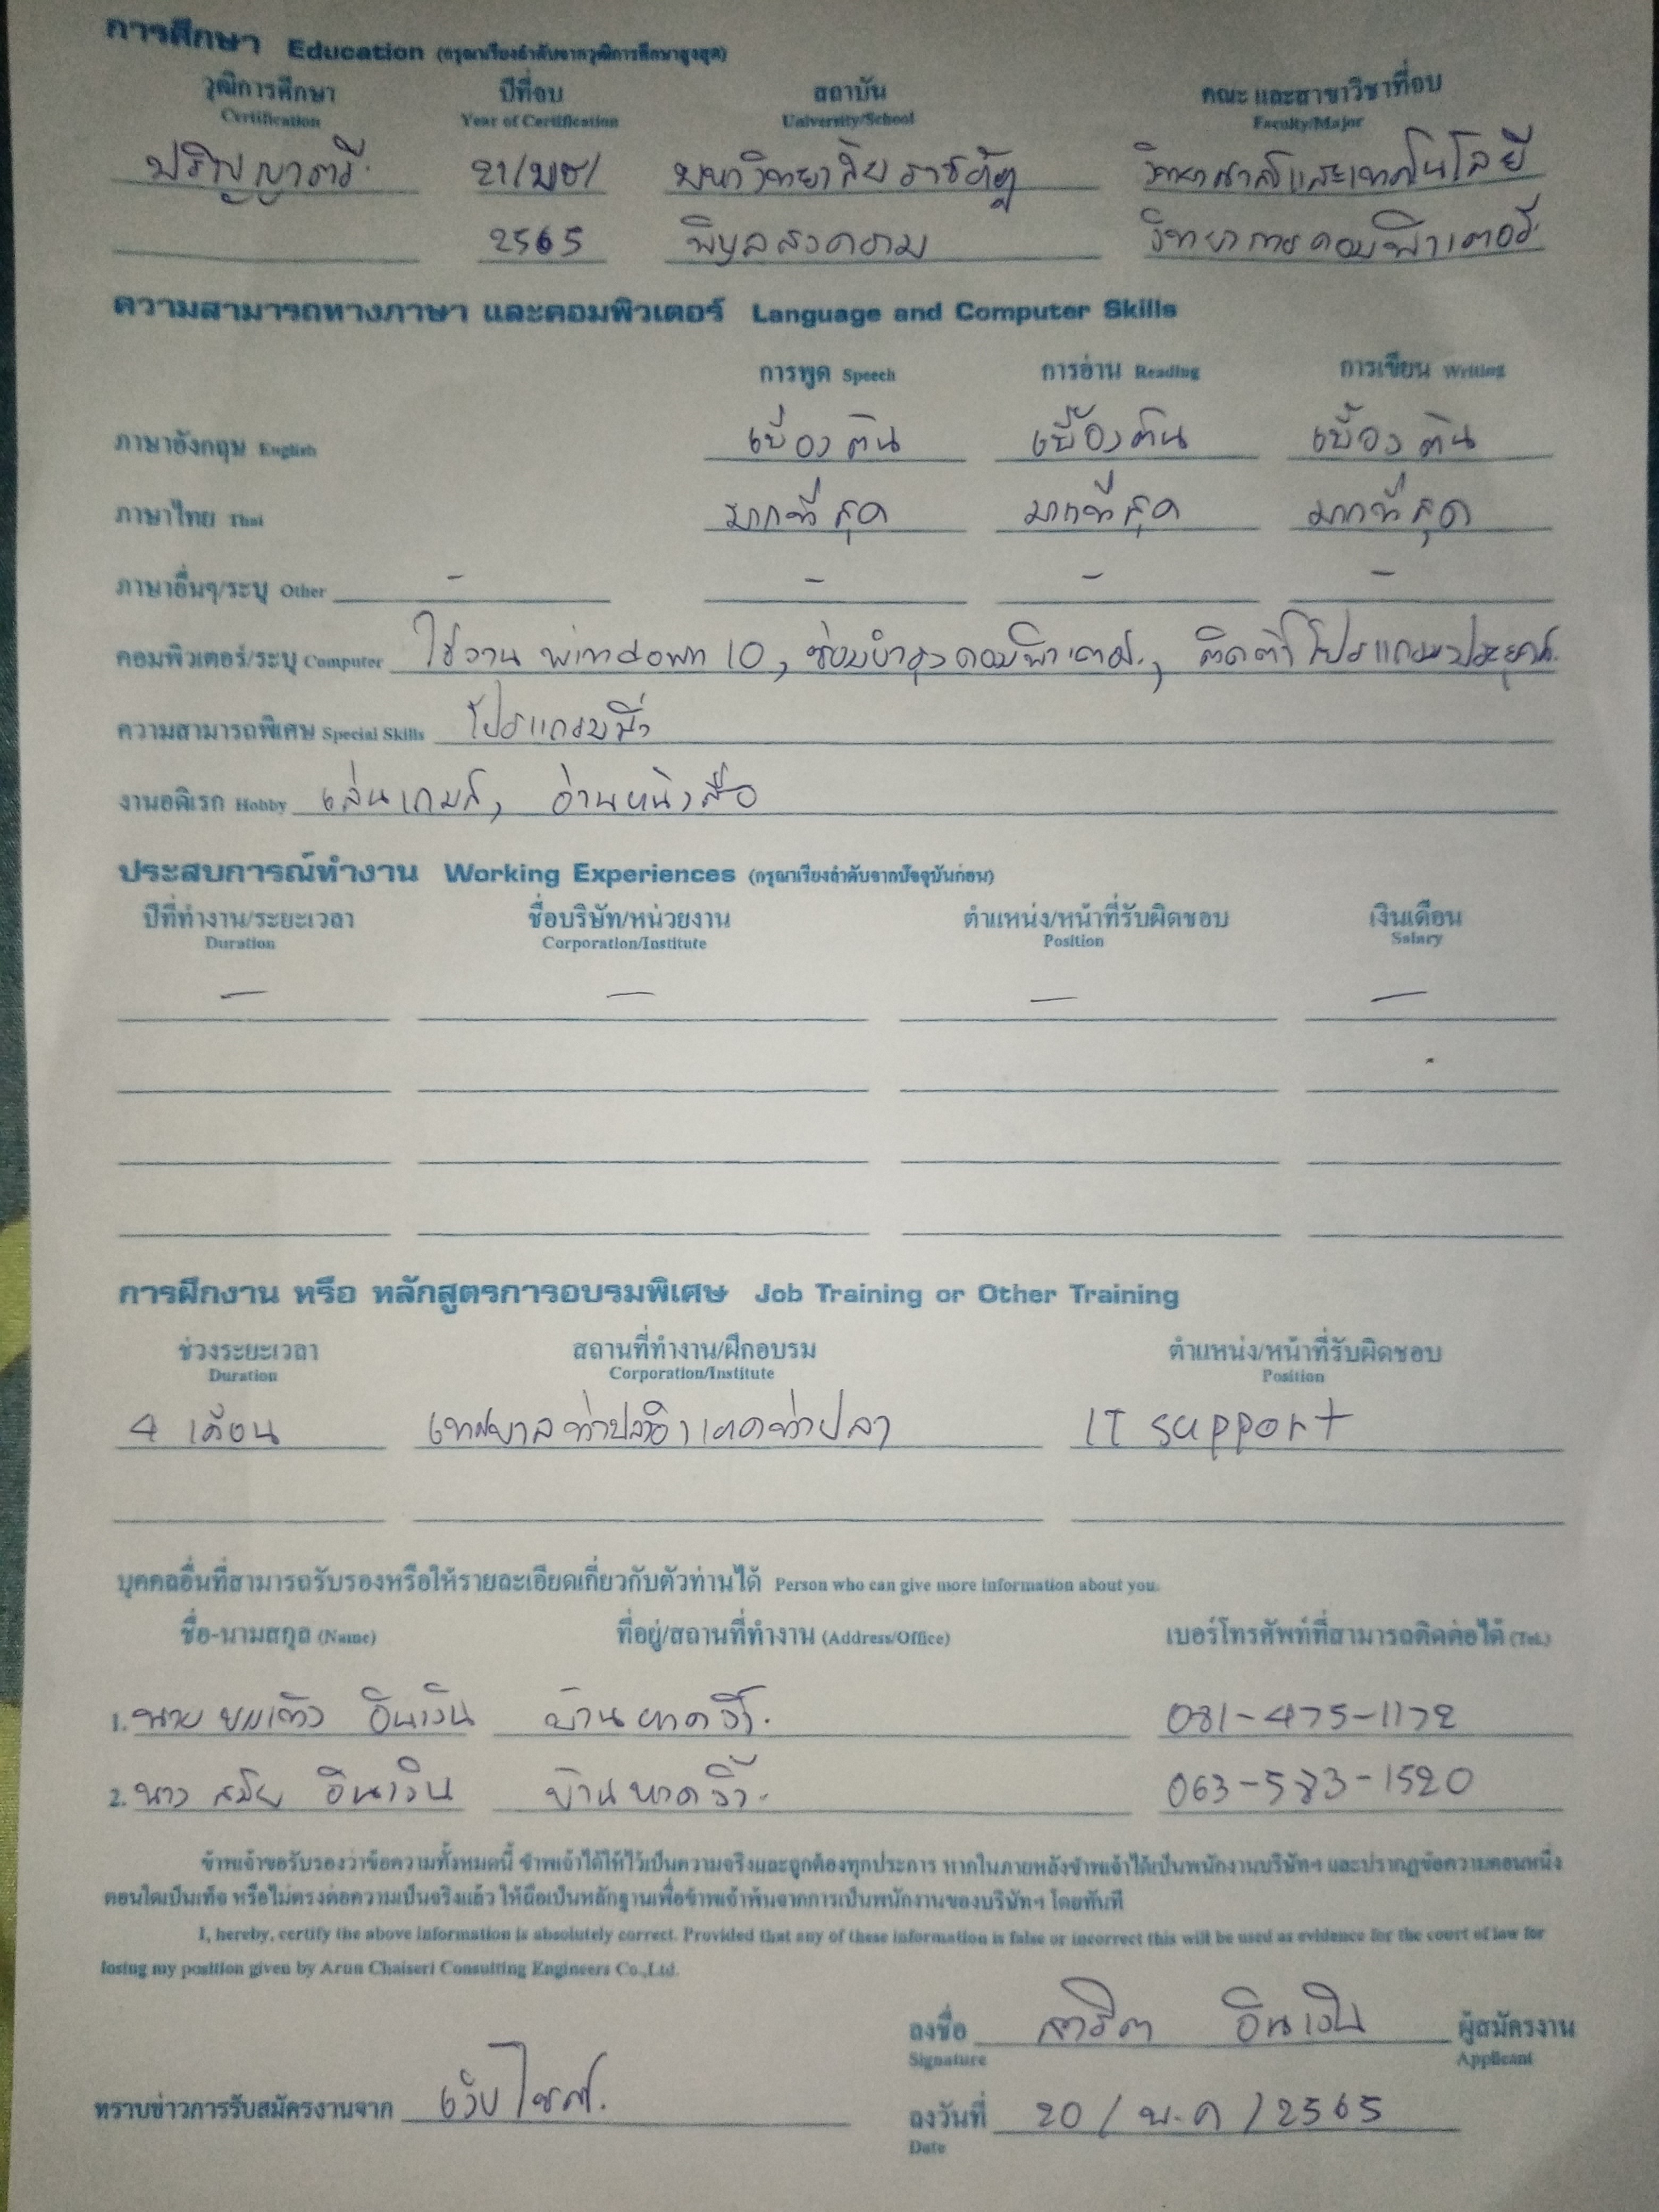 การศึกษา Education (กรุณาเรียงลำดับจากวุฒิการศึกษาสูงสุด)
วุฒิการศึกษา ปีที่จบ สถาบัน คณะ และสาขาวิชาที่จบ
Certification Year of Certification University/School Faculty/Major
ปริญญาตรี 21/เมษ/ มหาวิทยาลัยราชภัฏ วิทยาศาสตร์และเทคโนโลยี
2565 พิบูลสงคราม วิทยาการคอมพิวเตอร์
ความสามารถทางภาษา และคอมพิวเตอร์ Language and Computer Skills
การพูด Speech การอ่าน Reading การเขียน Writing
ภาษาอังกฤษ English เบื้องต้น เบื้องต้น เบื้องต้น
ภาษาไทย Thai มากที่สุด มากที่สุด มากที่สุด
ภาษาอื่นๆ/ระบุ Other - - - -
คอมพิวเตอร์/ระบุ Computer ใช้งาน window 10, ซ่อมบำรุงคอมพิวเตอร์, ติดตั้งโปรแกรมประยุกต์
ความสามารถพิเศษ Special Skills โปรแกรมมิ่ง
งานอดิเรก Hobby เล่นเกมส์, อ่านหนังสือ
ประสบการณ์ทำงาน Working Experiences (กรุณาเรียงลำดับจากปัจจุบันก่อน)
ปีที่ทำงาน/ระยะเวลา ชื่อบริษัท/หน่วยงาน ตำแหน่ง/หน้าที่รับผิดชอบ เงินเดือน
Duration Corporation/Institute Position Salary
- - - -
การฝึกงาน หรือ หลักสูตรการอบรมพิเศษ Job Training or Other Training
ช่วงระยะเวลา สถานที่ทำงาน/ฝึกอบรม ตำแหน่ง/หน้าที่รับผิดชอบ
Duration Corporation/Institute Position
4 เดือน IT support
บุคคลอื่นที่สามารถรับรองหรือให้รายละเอียดเกี่ยวกับตัวท่านได้ Person who can give more information about you.
ชื่อ-นามสกุล (Name) ที่อยู่/สถานที่ทำงาน (Address/Office) เบอร์โทรศัพท์ที่สามารถติดต่อได้ (Tel.)
1. นาย อินเงิน บ้านหาดงิ้ว 081-475-1172
2. นาง สมัย อินเงิน บ้านหาดงิ้ว 063-583-1520
ข้าพเจ้าขอรับรองว่าข้อความทั้งหมดนี้ ข้าพเจ้าได้ให้ไว้เป็นความจริงและถูกต้องทุกประการ หากในภายหลังข้าพเจ้าได้เป็นพนักงานบริษัทฯ และปรากฏข้อความตอนหนึ่ง
ตอนใดเป็นเท็จ หรือไม่ตรงต่อความเป็นจริงแล้ว ให้ถือเป็นหลักฐานเพื่อข้าพเจ้าพ้นจากการเป็นพนักงานของบริษัทฯ โดยทันที
I, hereby, certify the above information is absolutely correct. Provided that any of these information is false or incorrect this will be used as evidence for the court of law for
losing my position given by Arun Chaiseri Consulting Engineers Co.,Ltd.
ลงชื่อ สาริศา อินเงิน ผู้สมัครงาน
Signature Applicant
ทราบข่าวการรับสมัครงานจาก เว็บไซต์
ลงวันที่ 20 / พ.ค / 2565
Date